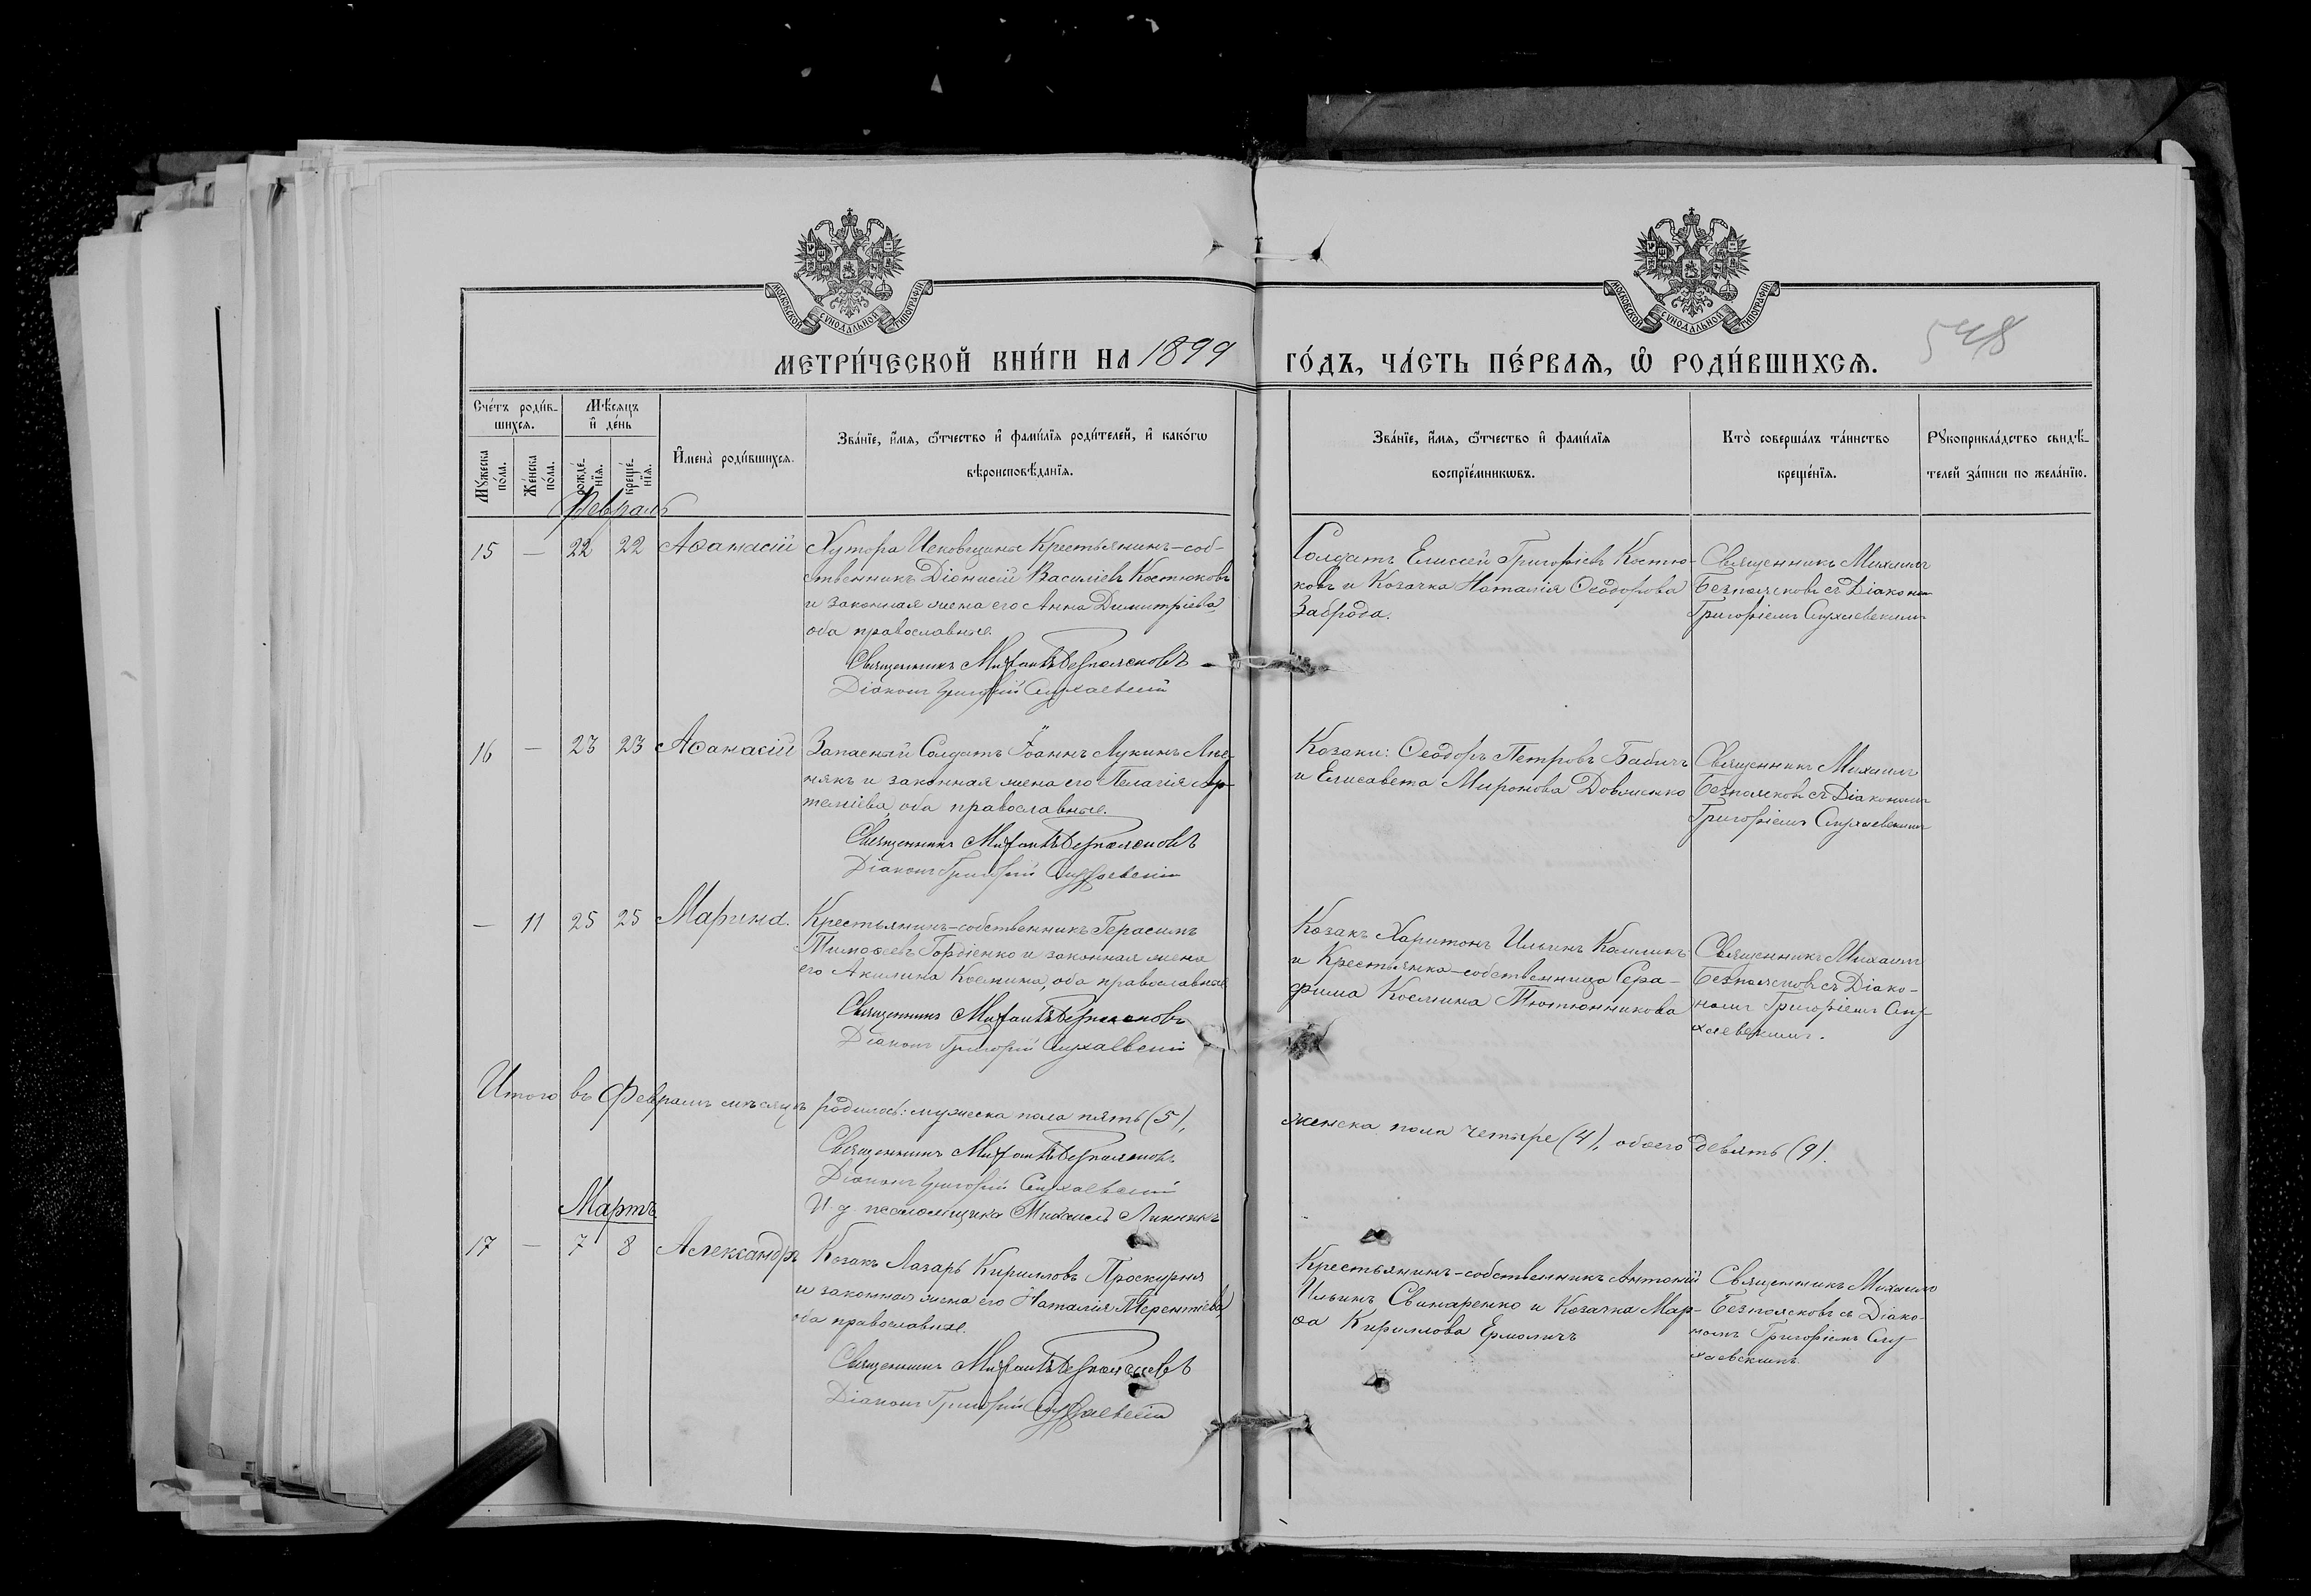 МОСКОВСКОЙ СѴНОДАЛЬНОЙ ТИПОГРАФІИ
МОСКОВСКОЙ СѴНОДАЛЬНОЙ ТИПОГРАФІИ
548
МЕТРИ́ЧЕСКОЙ КНИ́ГИ НА 1899 ГО́ДЪ, ЧА́СТЬ ПЕ́РВАѦ, Ѡ҆ РОДИ́ВШИХСѦ.
Сче́тъ роди́в-
шихсѧ.
Мꙋ́жеска
по́ла.
Же́нска
по́ла.
Мѣ́сѧцъ
и҆ де́нь
рожде́-
нїѧ.
креще́-
нїѧ.
И҆мена̀ роди́вшихсѧ.
Зва́нїе, и҆́мѧ, ѻ҆́тчество и҆ фами́лїѧ роди́телей, и҆ како́гѡ
вѣроисповѣ́данїѧ.
Зва́нїе, и҆́мѧ, ѻ҆́тчество и҆ фами́лїѧ
воспрїе́мникѡвъ.
Кто̀ соверша́лъ та́инство
креще́нїѧ.
Рꙋкоприкла́дство свидѣ́-
телей за́писи по жела́нїю.
Февраль
15 — 22 22 Аѳанасій
Хутора Чековщины Крестьянинъ-соб-
ственникъ Діонисій Василіевъ Костюковъ
и законная жена его Анна Димитріева
оба православные.
Священникъ Михаилъ Безпоясковъ
Діаконъ Григорій Слухаевскій
Солдатъ Елисей Григоріевъ Костю-
ковъ и Козачка Наталія Ѳеодорова
Заброда.
Священникъ Михаилъ
Безпоясковъ съ Діакономъ
Григоріемъ Слухаевскимъ
16 — 23 23 Аѳанасій
Запасный Солдатъ Іоаннъ Лукинъ
и законная жена его Пелагія Ар-
теміева, оба православные.
Священникъ Михаилъ Безпоясковъ
Діаконъ Григорій Слухаевскій
Козаки: Ѳеодоръ Петровъ Бабичъ
и Елисавета Миронова Довженко
Священникъ Михаилъ
Безпоясковъ съ Діакономъ
Григоріемъ Слухаевскимъ
— 11 25 25 Марина.
Крестьянинъ-собственникъ Герасимъ
Тимоѳеевъ Гордіенко и законная жена
его Акилина Космина, оба православные
Священникъ Михаилъ Безпоясковъ
Діаконъ Григорій Слухаевскій
Козакъ Харитонъ Ильинъ
и Крестьянка-собственница Сера-
фима Космина Тютюнникова
Священникъ Михаилъ
Безпоясковъ съ Діако-
номъ Григоріемъ Слу-
хаевскимъ.
Итого въ Февралѣ мѣсяцѣ родилось: мужеска пола пять (5), женска пола четыре (4), обоего девять (9).
Священникъ Михаилъ Безпоясковъ
Діаконъ Григорій Слухаевскій
И. д. псаломщика Михаилъ Линникъ
Мартъ
17 — 7 8 Александръ
Козакъ Лазарь Кирилловъ Проскурня
и законная жена его Наталія Терентіева,
оба православные.
Священникъ Михаилъ Безпоясковъ
Діаконъ Григорій Слухаевскій
Крестьянинъ-собственникъ Антоній
Ильинъ Свинаренко и Козачка Мар-
ѳа Кириллова Ермоличъ
Священникъ Михаилъ
Безпоясковъ съ Діако-
номъ Григоріемъ Слу-
хаевскимъ